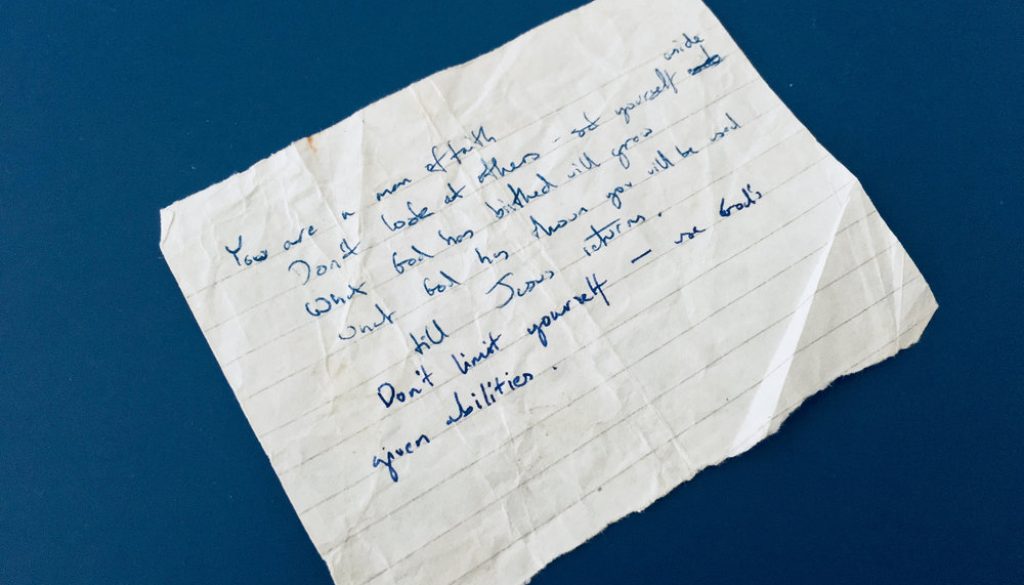 You are a man of faith
Don't look at others - set yourself aside
What God has birthed will grow
what God has shown you will be used
till Jesus returns.
Don't limit yourself - use God's
given abilities.